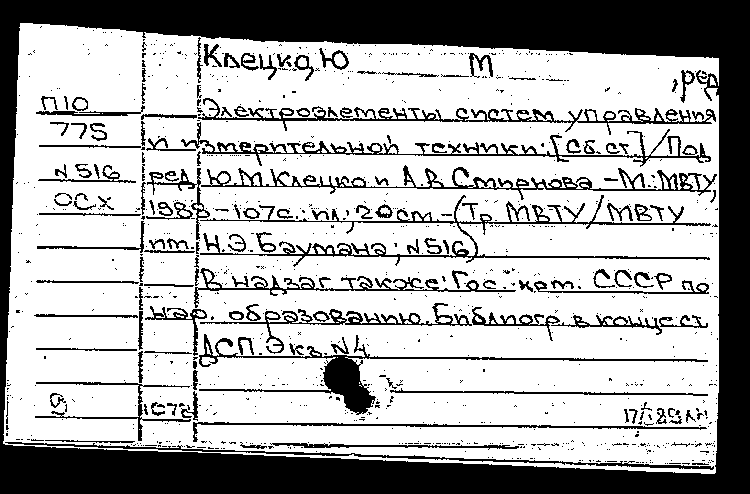 Клецко, Ю М , ред
П10 Электроэлементы систем управления
775 и измерительной техники: [Сб. ст.] / Под
N 516 ред Ю.М. Клецко и А.В Смирнова - М.: МВТУ,
ОСХ 1988 - 107с.: ил; 20см. - (Тр. МВТУ / МВТУ
им. Н.Э. Баумана; N516)
В надзаг также: Гос. ком. СССР по
нар. образованию. Библиогр в конце ст
ДСП. Экз. N4